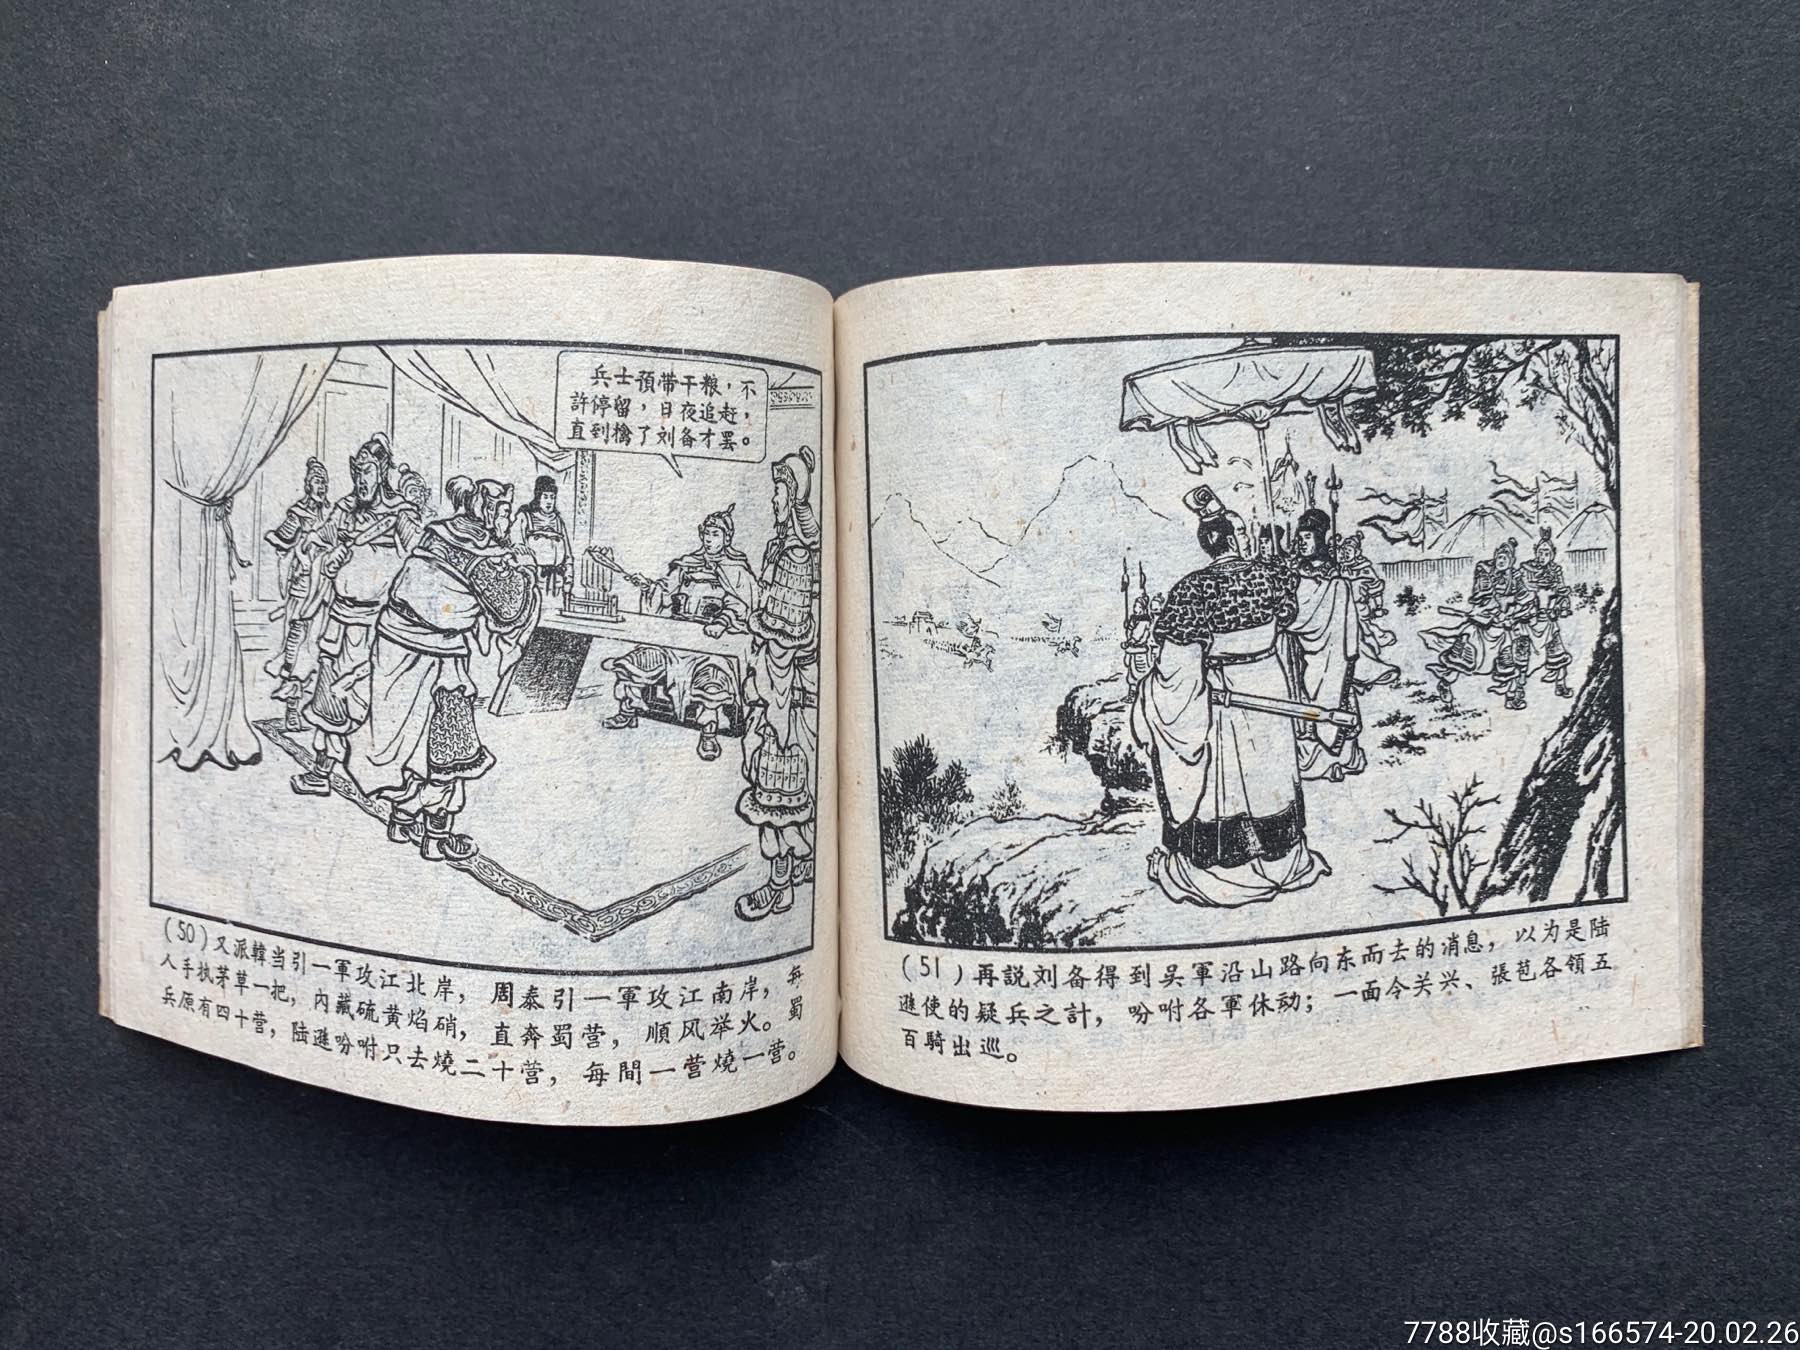 兵士預带干粮，不
許停留，日夜追赶，
直到擒了刘备才罢。
(50)又派韓当引一軍攻江北岸，周泰引一軍攻江南岸，每
人手执茅草一把，內藏硫黄焰硝，直奔蜀营，順风举火。蜀
兵原有四十营，陆遜吩咐只去燒二十营，每間一营燒一营。
(51)再説刘备得到吳軍沿山路向东而去的消息，以为是陆
遜使的疑兵之計，吩咐各軍休动；一面令关兴、張苞各領五
百騎出巡。
7788收藏@s166574-20.02.26